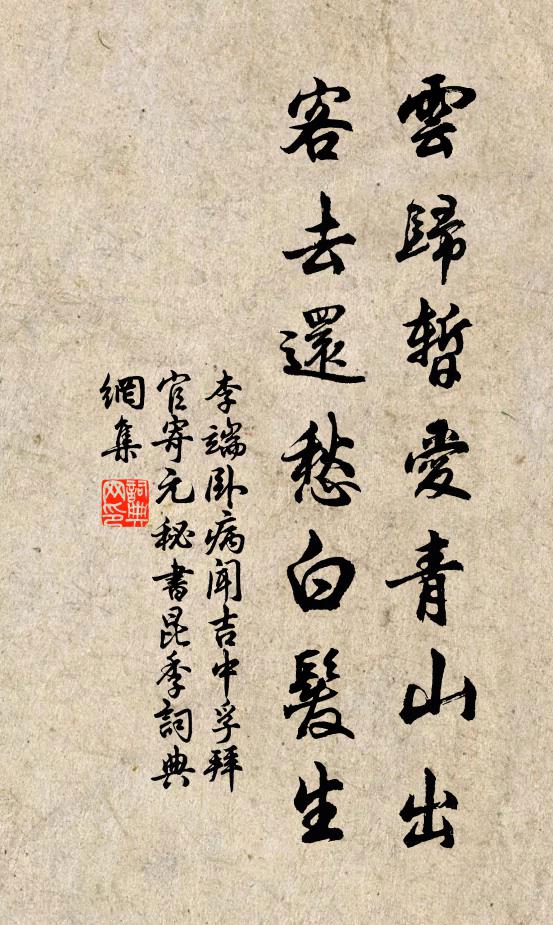 雲歸暫愛青山出
客去還愁白髮生
李端臥病聞吉中孚拜
官寄元秘書昆季詞典
網集
詞典
网印